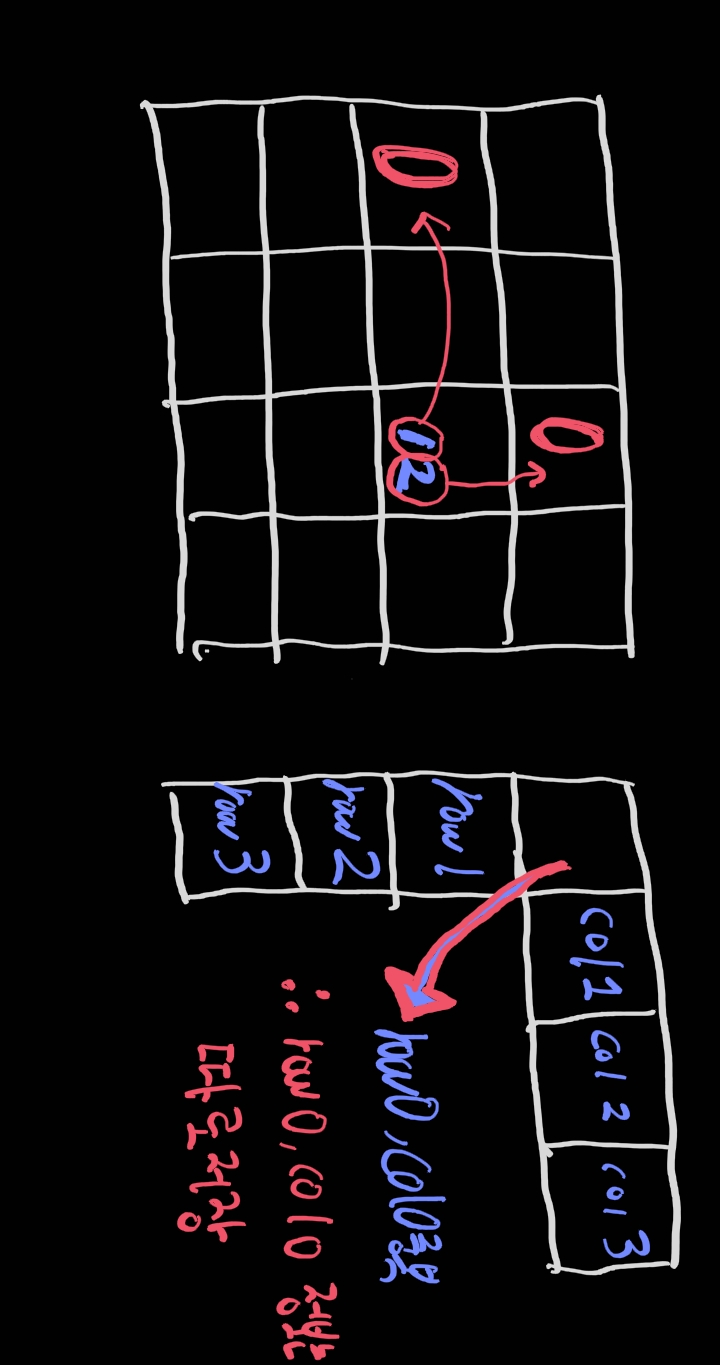 0
0
12
col1 col 2 col 3
row1
row2
row 3
row0, col0중복
∴ row0, col0 정보
따로저장